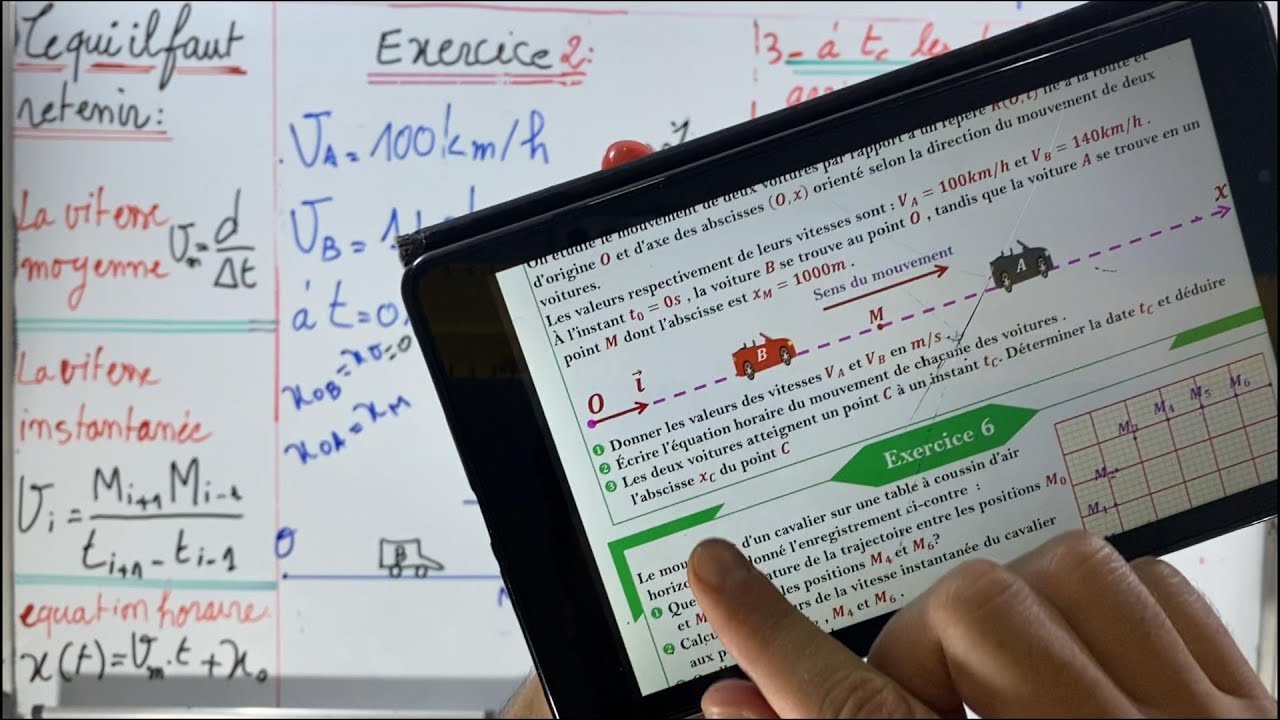 Ce qu il faut
retenir:
La vitesse
moyenne
Vm = d/Δt
La vitesse
instantanée
Vi = Mi+1 Mi-1 / ti+1 - ti-1
equation horaire
x(t) = Vm.t + x0
Exercice 2:
VA = 100 km/h
VB = 1
á t = 0
x0B = x0 = 0
x0A = xM
O
B
3 - á tc les
On étudie le mouvement de deux voitures par rapport à un repère R(O, i) lié à la route et
d'origine O et d'axe des abscisses (O, x) orienté selon la direction du mouvement de deux
voitures.
Les valeurs respectivement de leurs vitesses sont : VA = 100km/h et VB = 140km/h .
À l'instant t0 = 0s , la voiture B se trouve au point O , tandis que la voiture A se trouve en un
point M dont l'abscisse est xM = 1000m .
Sens du mouvement
x
A
M
B
O
i⃗
❶ Donner les valeurs des vitesses VA et VB en m/s .
❷ Écrire l'équation horaire du mouvement de chacune des voitures .
❸ Les deux voitures atteignent un point C à un instant tC. Déterminer la date tC et déduire
l'abscisse xC du point C
Exercice 6
Le mou d'un cavalier sur une table à coussin d'air
horiz donné l'enregistrement ci-contre :
❶ Que ature de la trajectoire entre les positions M0
et M les positions M4 et M6?
❷ Calcu rs de la vitesse instantanée du cavalier
aux p , M4 et M6 .
M1
M2
M3
M4
M5
M6